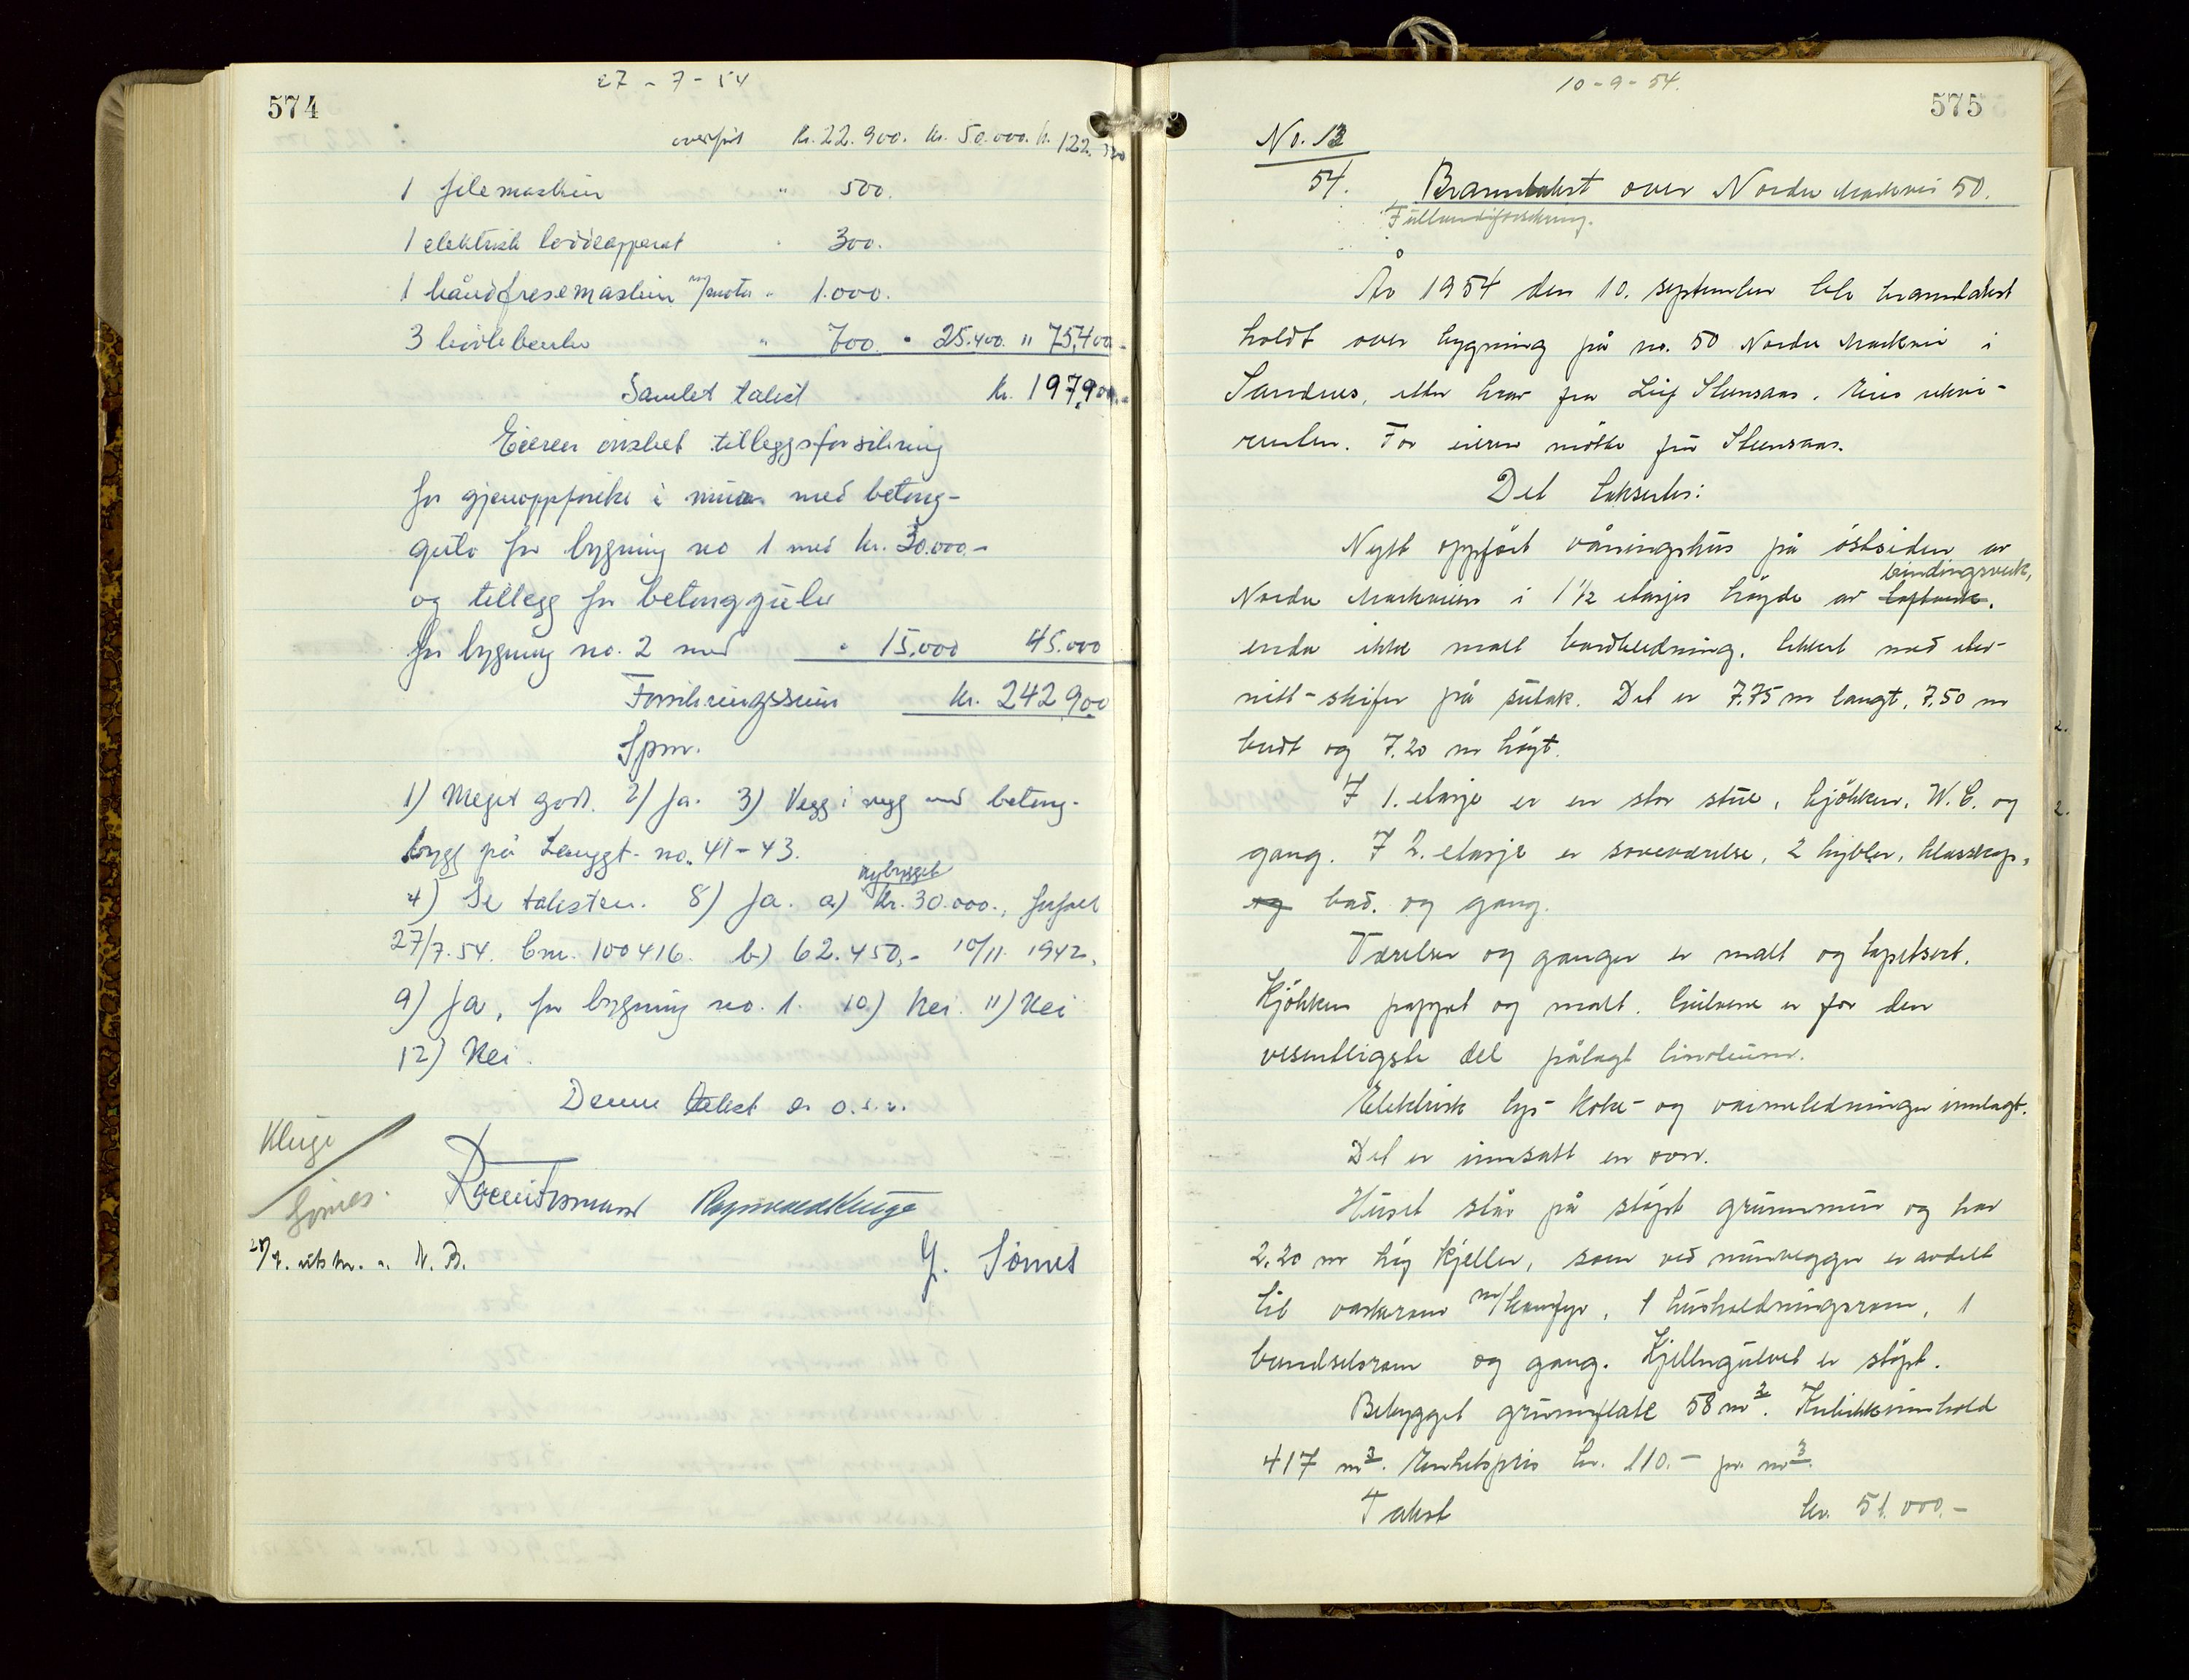 574
27 - 7 - 54
overført kr. 22.900. kr. 50.000. kr. 122.500
1 filemaskin " 500.
1 elektrisk loddeapparat " 300.
1 håndfresemaskin m/motor " 1.000.
3 høvlebenker " 700. " 25.400. " 75.400.-
Samlet takst kr. 197.900.-
Eieren ønsket tilleggsforsikring
for gjenoppførelse i mur med betong-
gulv for bygning no 1 med kr. 30.000.-
og tillegg for betonggulv
for bygning no. 2 med " 15.000 45.000
Forsikringssum kr. 242.900
Spm.
1) Meget god. 2) Ja. 3) Vegg i vegg med betong-
bygg på Langgt. no. 41-43.
nybygget
4) Se taksten. 8) Ja. a) kr. 30.000.,
27/7.54. bnr. 100416. b) 62.450,- 10/11 1942.
9) Ja, for bygning no. 1. 10) Nei. 11) Nei
12) Nei.
Denne takst er o.s.v.
Kluge
Sømes.
Ragnvald Kluge
J. Sømes
28/7. utskr. a. N. B.
575
10-9-54.
No. 12
54. Branntakst over Nordre Markvei 50.
Fullverdiforsikring.
År 1954 den 10. september ble branntakst
holdt over bygning på no. 50 Nordre Markvei i
Sandnes, etter krav fra Leif Stensaas. Eies rekvi-
renten. For eieren møtte fru Stensaas.
Det taksertes:
Nytt oppført våningshus på østsiden av
bindingsverk,
Nordre Markveien i 1 1/2 etasjes høyde av laftverk.
enda ikke malt bordkledning. tekket med eter-
nitt-skifer på sutak. Det er 7.75 m langt, 7.50 m
bredt og 7.20 m høyt.
I 1. etasje er en stor stue, kjøkken, W.C. og
gang. I 2. etasje er soveværelse, 2 hybler, klesskap,
og bad. og gang.
Værelser og ganger er malt og tapetsert.
Kjøkken pappet og malt. Gulvene er for den
vesentligste del pålagt linoleum.
Elektrisk lys- koke- og varmeledninger innlagt.
Det er innsatt en ovn.
Huset står på støpt grunnmur og har
2.20 m høy kjeller, som ved murvegger er avdelt
til vaskerom m/komfyr, 1 husholdningsrom, 1
brendselsrom og gang. Kjellergulvet er støpt.
Bebygget grunnflate 58 m2. Kubikkinnhold
417 m3. Enhetspris kr. 110.- pr. m3.
Takst kr. 51.000.-